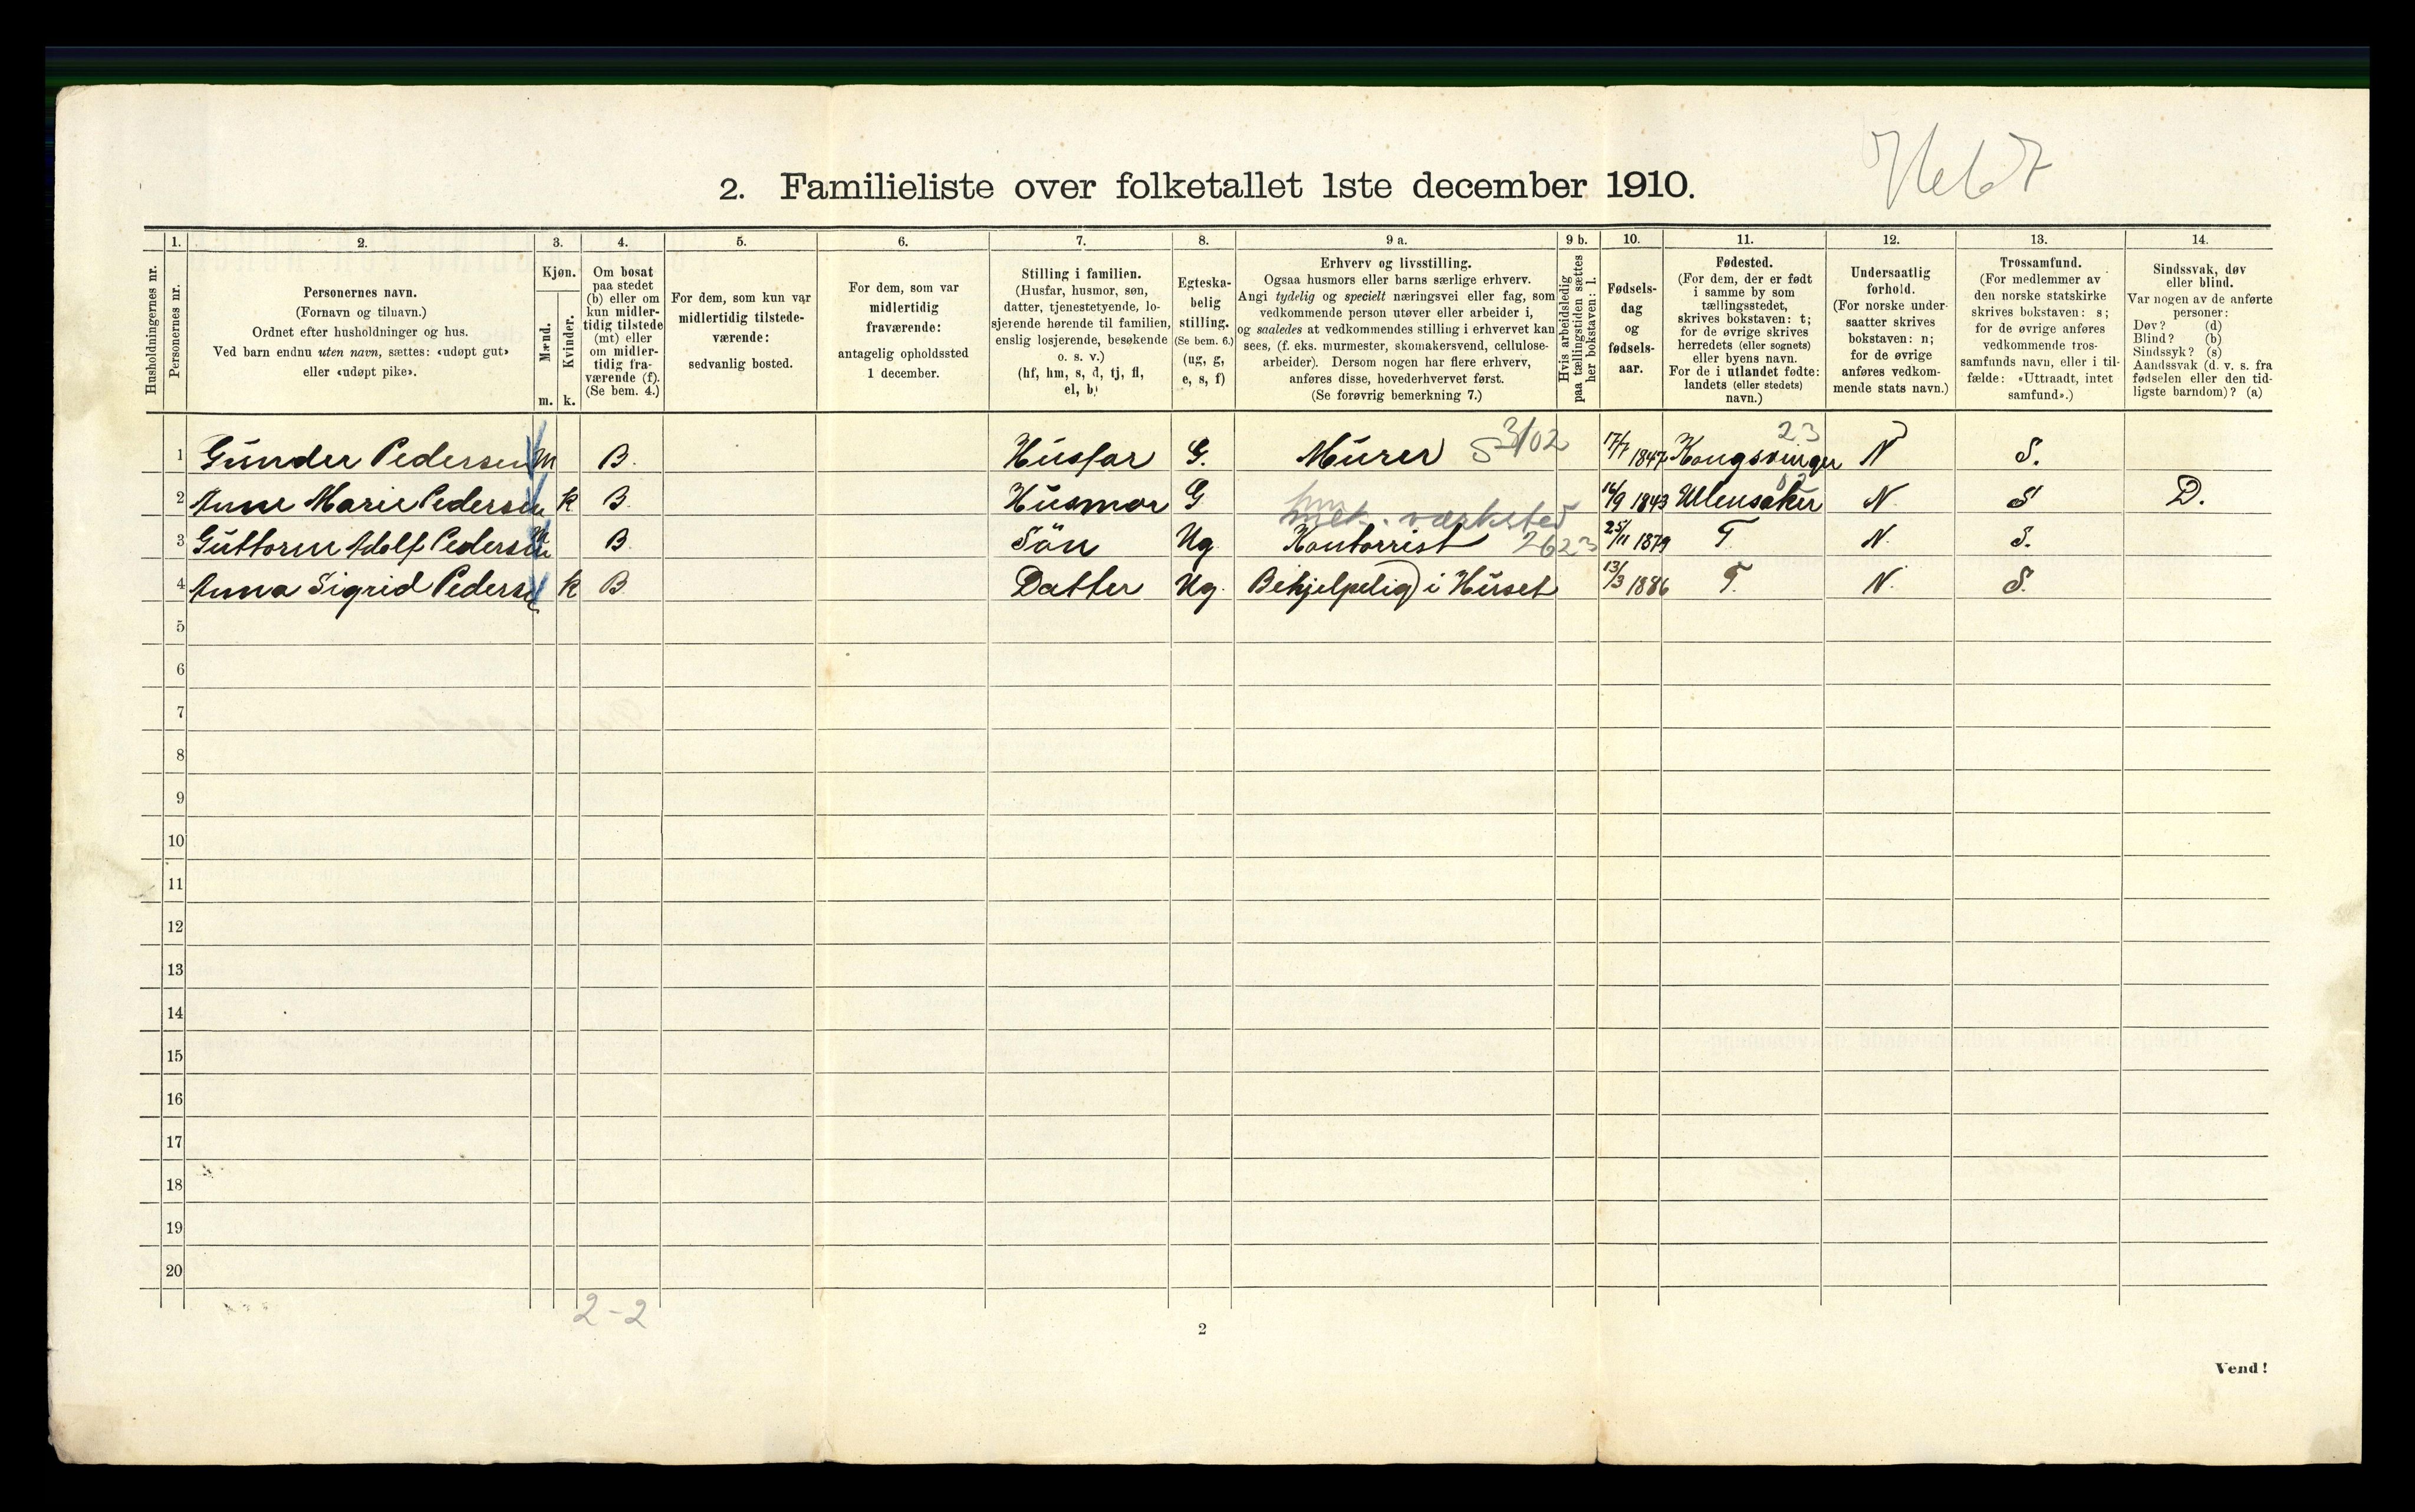 2. Familieliste over folketallet 1ste december 1910.
Husholdningernes nr.
1.
Personernes nr.
2.
Personernes navn.
(Fornavn og tilnavn.)
Ordnet efter husholdninger og hus.
Ved barn endnu uten navn, sættes: «udøpt gut»
eller «udøpt pike».
3.
Kjøn.
Mænd.
m.
Kvinder.
k.
4.
Om bosat
paa stedet
(b) eller om
kun midler-
tidig tilstede
(mt) eller
om midler-
tidig fra-
værende (f).
(Se bem. 4.)
5.
For dem, som kun var
midlertidig tilstede-
værende:
sedvanlig bosted.
6.
For dem, som var
midlertidig
fraværende:
antagelig opholdssted
1 december.
7.
Stilling i familien.
(Husfar, husmor, søn,
datter, tjenestetyende, lo-
sjerende hørende til familien,
enslig losjerende, besøkende
o. s. v.)
(hf, hm, s, d, tj, fl,
el, b)
8.
Egteska-
belig
stilling.
(Se bem. 6.)
(ug, g,
e, s, f)
9 a.
Erhverv og livsstilling.
Ogsaa husmors eller barns særlige erhverv.
Angi tydelig og specielt næringsvei eller fag, som
vedkommende person utøver eller arbeider i,
og saaledes at vedkommendes stilling i erhvervet kan
sees, (f. eks. murmester, skomakersvend, cellulose-
arbeider). Dersom nogen har flere erhverv,
anføres disse, hovederhvervet først.
(Se forøvrig bemerkning 7.)
9 b.
Hvis arbeidsledig
paa tællingstiden sættes
her bokstaven: l.
10.
Fødsels-
dag
og
fødsels-
aar.
11.
Fødested.
(For dem, der er født
i samme by som
tællingsstedet,
skrives bokstaven: t;
for de øvrige skrives
herredets (eller sognets)
eller byens navn.
For de i utlandet fødte:
landets (eller stedets)
navn.)
12.
Undersaatlig
forhold.
(For norske under-
saatter skrives
bokstaven: n;
for de øvrige
anføres vedkom-
mende stats navn.)
13.
Trossamfund.
(For medlemmer av
den norske statskirke
skrives bokstaven: s;
for de øvrige anføres
vedkommende tros-
samfunds navn, eller i til-
fælde: «Uttraadt, intet
samfund».)
14.
Sindssvak, døv
eller blind.
Var nogen av de anførte
personer:
Døv? (d)
Blind? (b)
Sindssyk? (s)
Aandssvak (d. v. s. fra
fødselen eller den tid-
ligste barndom)? (a)
1 Gunder Pedersen m B. Husfar G. Murer 3102 17/7 1847 Kongsvinger 23 N S.
2 Anne Marie Pedersen k B. Husmor G 16/9 1843 Ullensaker N. S D.
mek. værksted
3 Guttorm Adolf Pedersen m B. Sön Ug. Kontorrist 2623 25/11 1879 T. N. S.
4 Anna Sigrid Pedersen k B. Datter Ug. Behjelpelig i Huset 13/3 1886 T. N. S.
5
6
7
8
9
10
11
12
13
14
15
16
17
18
19
20
2-2
2
Vend!